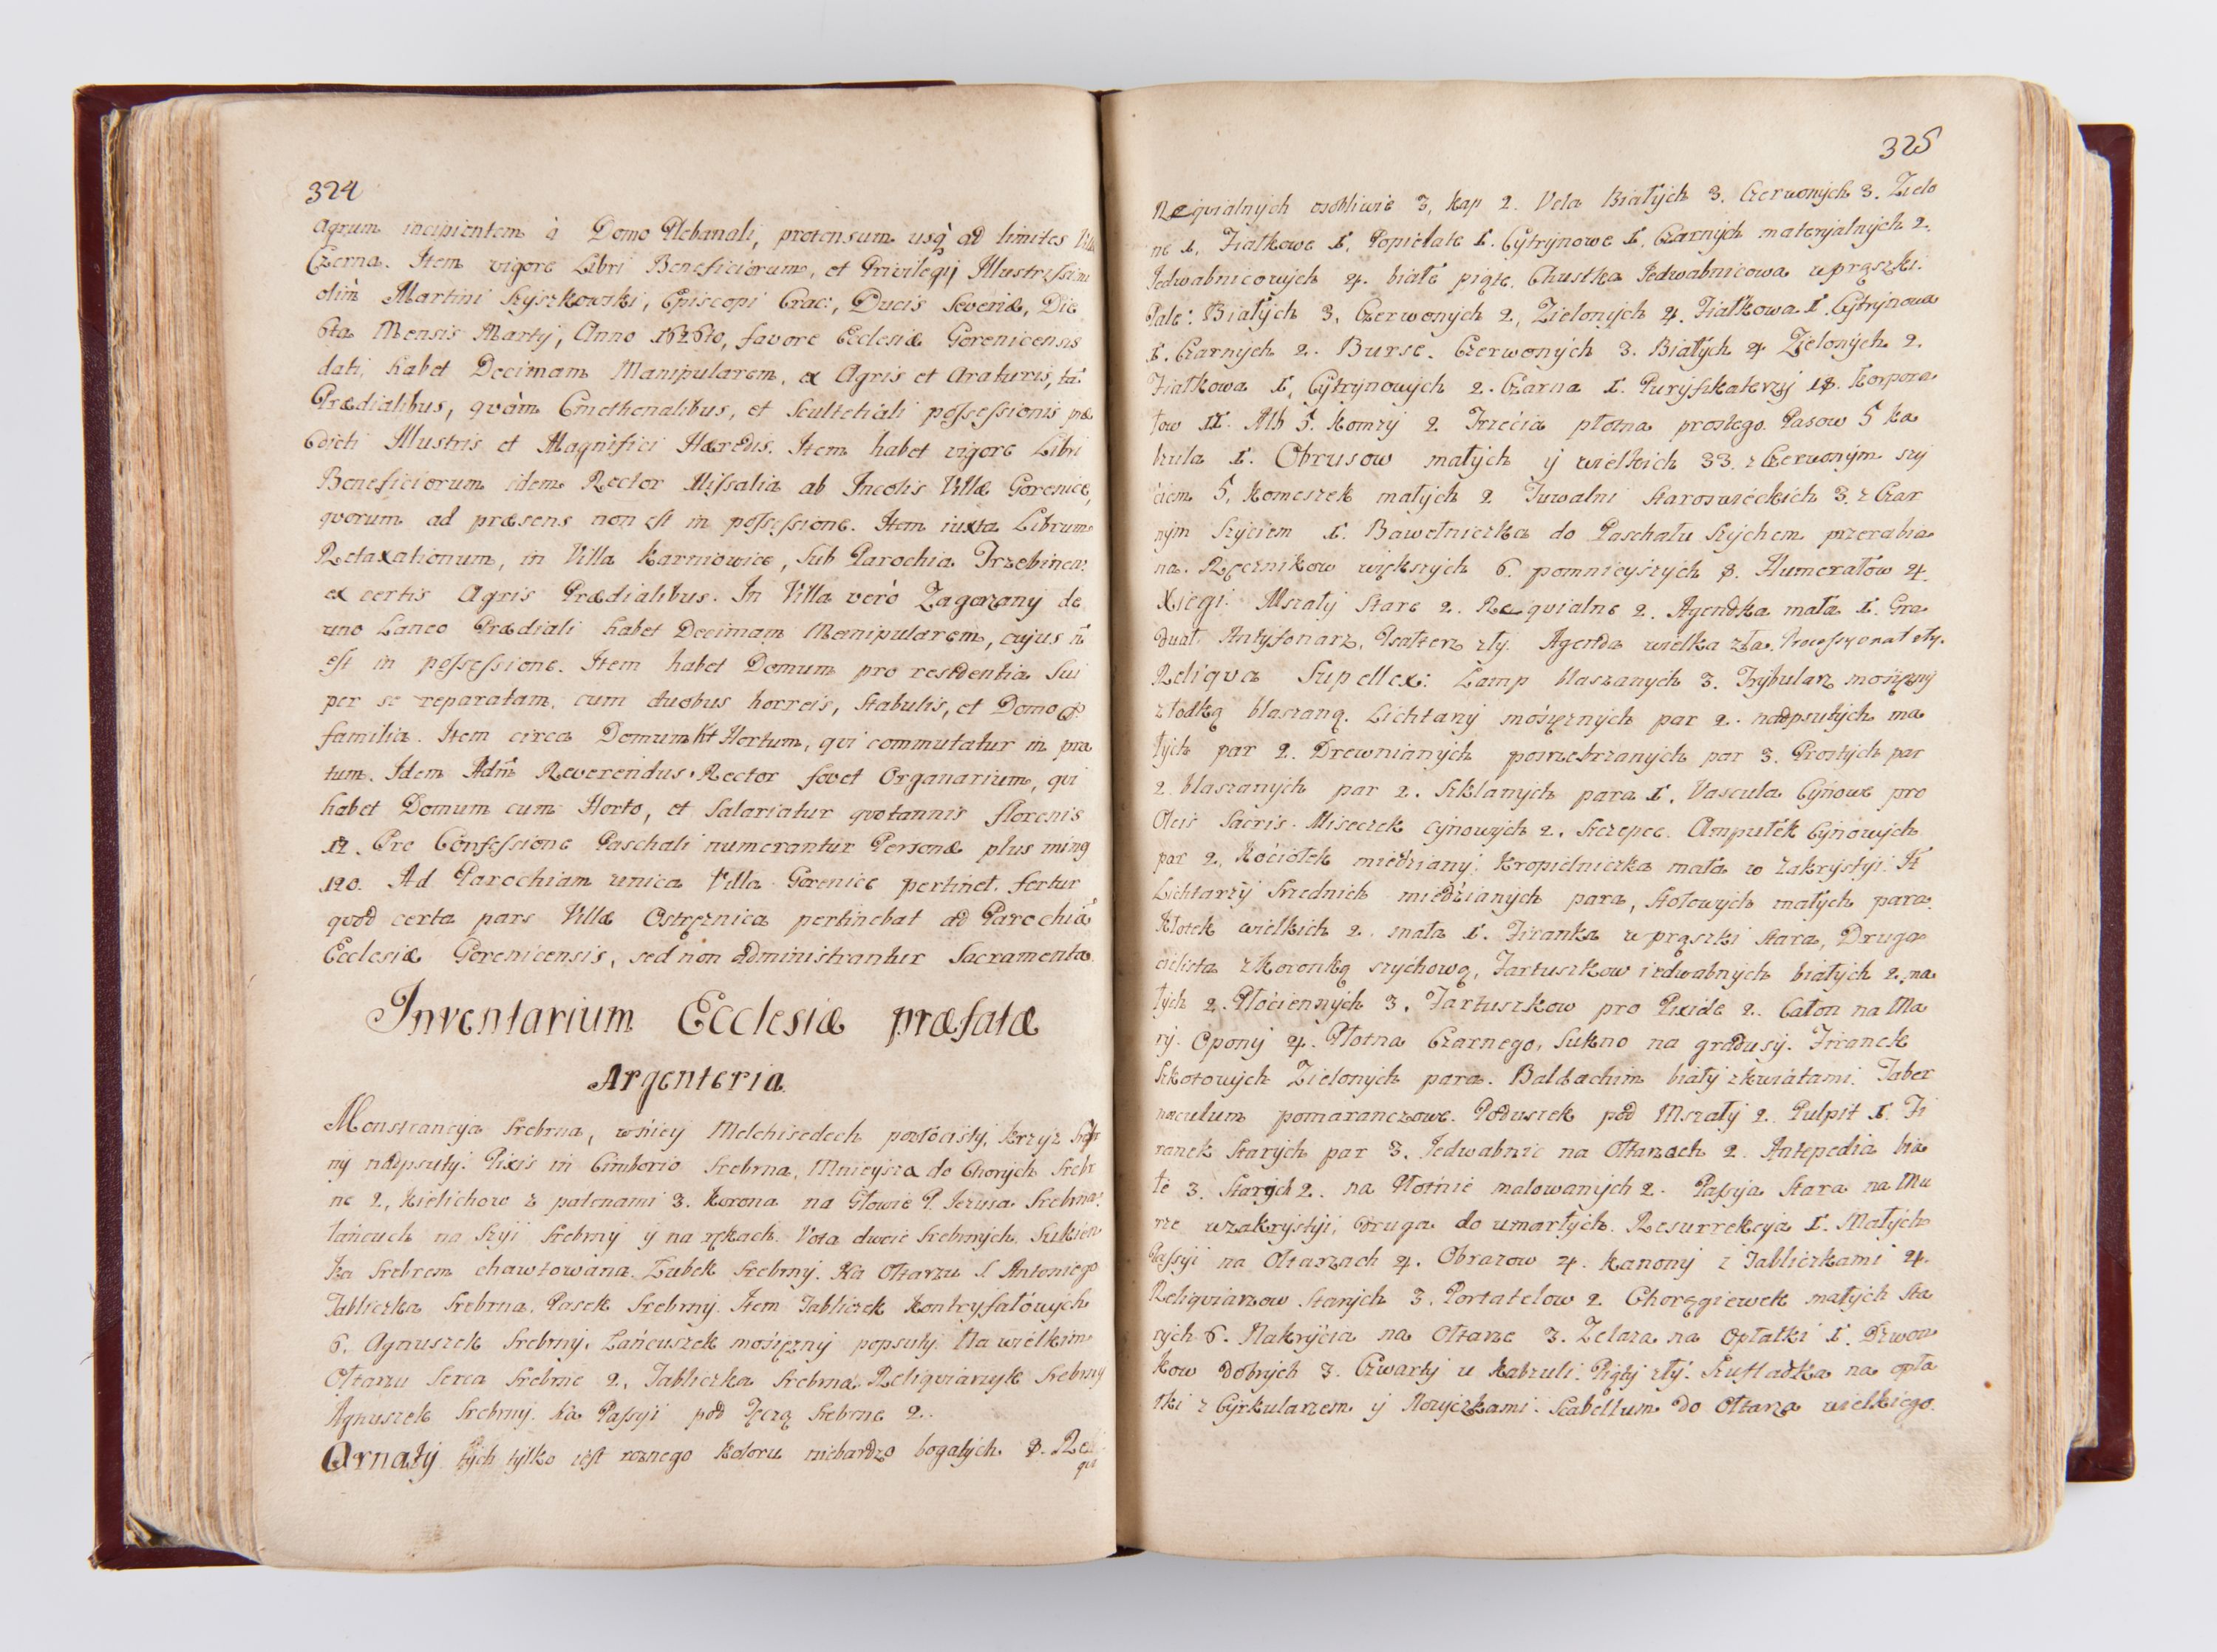 324
Agrum incipientem à Domo Plebanali, protensum usq; ad limites Villæ
Czerna. Item vigore Libri Beneficiorum, et Privilegij Illustrissimi
olim Martini Szyszkowski, Episcopi Crac:, Ducis Severiæ, Die
6ta Mensis Martij, Anno 1626to, favore Ecclesiæ Gorenicensis
dati, habet Decimam Manipularem, ex Agris et Araturis, tã
Prædialibus, qvàm Cmethonalibus, et Scultetiali possessionis præ
dicti Illustris et Magnifici Hæredis. Item habet vigore Libri
Beneficiorum idem Rector Missalia ab Incolis Villæ Gorenice,
qvorum ad præsens non est in possessione. Item iuxta Librum
Retaxationum, in Villa Karniowice, sub Parochia Trzebinen:
ex certis Agris Prædialibus. In Villa verò Zagorzany de
uno Laneo Prædiali habet Decimam Manipularem, cujus ñ
est in possessione. Item habet Domum pro residentia sui
per se reparatam, cum duobus horreis, stabulis, et Domo p
familia. Item circa Domum Hortum, qui commutatur in pra
tum. Idem Adm Reverendus Rector fovet Organarium, qvi
habet Domum cum Horto, et Salariatur qvotannis florenis
12. Pro Confessione Paschali numerantur Personæ plus ming
120. Ad Parochiam unica Villa Gorenice pertinet. fertur
qvod certa pars Villæ Ostrężnica pertinebat ad Parochiã
Ecclesiæ Gorenicensis, sed non administrantur Sacramenta.
Inventarium Ecclesiæ præfatæ
Argenteria
Monstrancya Srebrna, wniey Melchisedech pozłocisty, krzyz Srebr
ny nadpsuty. Pixis in Cimborio Srebrna, Mnieysza do Chorych Srebr
ne 2, Kielichow z patenami 3. Korona na Głowie P. Jezusa Srebrna.
łańcuch na Szyi Srebrny y na rękach. Vota dwoie Srebrnych. Sukien
ka Srebrem chawtowana. Zubek Srebrny. Na Ołtarzu S Antoniego
Tabliczka Srebrna. Pasek Srebrny. Item Tabliczek Kontryfałowych
6. Agnuszek Srebrny, Łańcuszek mosiężny popsuty. Na wielkim
Ołtarzu Serca Srebrne 2, Tabliczka Srebrna. Reliqviarzyk Srebrny
Agnuszek Srebrny. Na Passyi pod Tęczą Srebrne 2.
Ornaty tych tylko iest roznego Koloru niebardzo bogatych 8. Re
qvi
325
Reqvialnych osobliwie 3, Kap 2. Vela Białych 3. Czerwonych 3. Zielo
ne 1, Fiałkowe 1, Popielate 1. Cytrynowe 1, Czarnych materyalnych 2,
Jedwabnicowych 4. białe piąte. Chustka Jedwabnicowa w prążki.
Pale: Białych 3, Czerwonych 2, Zielonych 4. Fiałkowa 1. Cytrynowa
1. Czarnych 2. Burse. Czerwonych 3. Białych 4 Zielonych 2.
Fiałkowa 1, Cytrynowych 2. Czarna 1. Puryfikaterzy 18. Korpora
łow 11. Alb 5. Komzy 2 Trzecia płotna prostego. Pasow 5 ka
bzula 1. Obrusow małych y wielkich 33. z Czerwonym szy
ciem 5, Komeszek małych 2 Tuwalni staroswieckich 3. z Czar
nym Szyciem 1. Bawełniczka do Paschału Szychem przerabia
na. Ręcznikow większych 6. pomnieyszych 8. Humerałow 4.
Xiegi. Mszały Stare 2. Reqvialne 2. Agendka mała 1. Gra
duał. Antyfonarz, Psałterz zły. Agenda wielka zła. Processyonał zły.
Reliqva Supellex: Lamp blaszanych 3. Trybularz mosiężny
z łodką blaszaną. Lichtarzy mosiężnych par 2. nadpsutych ma
łych par 2. Drewnianych posrzebrzanych par 3. Prostych par
2. blaszanych par 2. Szklanych para 1. Vascula Cynowe pro
Oleis Sacris. Miseczek cynowych 2. Szczepec. Ampułek Cynowych
par 2, Kociołek miedziany. Kropielniczka mała w Zakrystyi. It
Lichtarzy Srzednich miedzianych para, stołowych małych para.
Kłotek wielkich 2. mała 1. Firanka w prążki stara, Druga
cielista z koronką szychową, Fartuszkow iedwabnych białych 2. ma
łych 2. Płociennych 3. Fartuszkow pro Pixide 2. Całon na Ma
ry. Opony 4. Płotna Czarnego, Sukno na gradusy. Firanek
Szkotowych Zielonych para. Baldachim biały z kwiatami. Taber
naculum pomaranczowe. Poduszek pod Mszały 2. Pulpit 1. Fi
ranek Starych par 3. Jedwabnic na Ołtarzach 2. Antepedia bia
łe 3. Starych 2. na Płotnie malowanych 2. Passyja Stara na Mu
rze w zakrystyi, Druga do umarłych. Resurrekcya 1. Małych
Passyi na Ołtarzach 4. Obrazow 4. Kanony z Tabliczkami 4.
Reliqviarzow Starych 3. Portatelow 2 Chorągiewek małych sta
rych 6. Nakrycia na Ołtarze 3. Zelaza na Opłatki 1. Dzwon
kow dobrych 3. Czwarty u Kabzuli. Piąty zły. Szufladka na opła
tki z Cyrkularzem y Nozyczkami. Scabellum Do Ołtarza wielkiego.